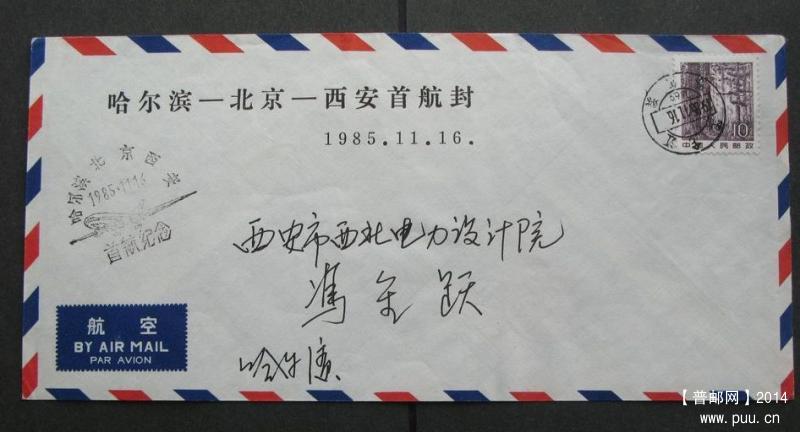 哈尔滨—北京—西安首航封
1985.11.16.
哈尔滨 北京 西安
1985·11·16
首航纪念
10
中国人民邮政
西安市西北电力设计院
冯金跃
哈尔滨
航空
BY AIR MAIL
PAR AVION
【普邮网】2014
www.puu.cn